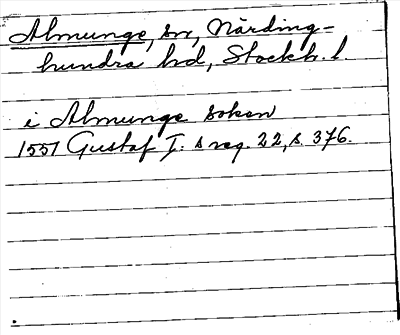 Almunge, sn, Närding-
hundra hd, Stockh. l
i Almunge soken
1557 Gustaf I:s reg. 22, s. 376.